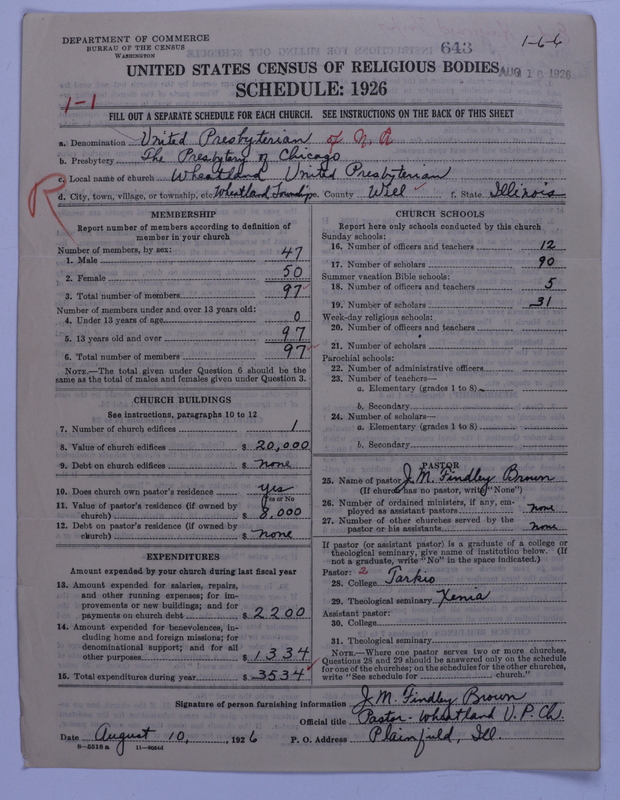 DEPARTMENT OF COMMERCE
BUREAU OF THE CENSUS
WASHINGTON
643
1-6-6
AUG 16 1926
UNITED STATES CENSUS OF RELIGIOUS BODIES
SCHEDULE: 1926
1-1
FILL OUT A SEPARATE SCHEDULE FOR EACH CHURCH. SEE INSTRUCTIONS ON THE BACK OF THIS SHEET
a. Denomination United Presbyterian of N. A
b. Presbytery The Presbytery of Chicago
c. Local name of church Wheatland United Presbyterian
R
d. City, town, village, or township, etc. Wheatland Township e. County Will f. State Illinois
MEMBERSHIP
Report number of members according to definition of
member in your church
Number of members, by sex:
1. Male 47
2. Female 50
3. Total number of members 97
Number of members under and over 13 years old:
4. Under 13 years of age 0
5. 13 years old and over 97
6. Total number of members 97
NOTE.—The total given under Question 6 should be the
same as the total of males and females given under Question 3.
CHURCH BUILDINGS
See instructions, paragraphs 10 to 12
7. Number of church edifices 1
8. Value of church edifices $ 20,000
9. Debt on church edifices $ none
10. Does church own pastor's residence yes
Yes or No
11. Value of pastor's residence (if owned by
church) $ 8,000
12. Debt on pastor's residence (if owned by
church) $ none
EXPENDITURES
Amount expended by your church during last fiscal year
13. Amount expended for salaries, repairs,
and other running expenses; for im-
provements or new buildings; and for
payments on church debt $ 2200
14. Amount expended for benevolences, in-
cluding home and foreign missions; for
denominational support; and for all
other purposes $ 1334
15. Total expenditures during year $ 3534
CHURCH SCHOOLS
Report here only schools conducted by this church
Sunday schools:
16. Number of officers and teachers 12
17. Number of scholars 90
Summer vacation Bible schools:
18. Number of officers and teachers 5
19. Number of scholars 31
Week-day religious schools:
20. Number of officers and teachers
21. Number of scholars
Parochial schools:
22. Number of administrative officers
23. Number of teachers—
a. Elementary (grades 1 to 8)
b. Secondary
24. Number of scholars—
a. Elementary (grades 1 to 8)
b. Secondary
PASTOR
25. Name of pastor J. M. Findley Brown
(If church has no pastor, write "None")
26. Number of ordained ministers, if any, em-
ployed as assistant pastors none
27. Number of other churches served by the
pastor or his assistants none
If pastor (or assistant pastor) is a graduate of a college or
theological seminary, give name of institution below. (If
not a graduate, write "No" in the space indicated.)
Pastor: 2
28. College Tarkio
29. Theological seminary Xenia
Assistant pastor:
30. College
31. Theological seminary
NOTE.—Where one pastor serves two or more churches,
Questions 28 and 29 should be answered only on the schedule
for one of the churches; on the schedules for the other churches,
write "See schedule for church."
Signature of person furnishing information J. M. Findley Brown
Official title Pastor - Wheatland U. P. Ch.
Date August 10, 1926 P. O. Address Plainfield, Ill.
8-5518a 11-9034d